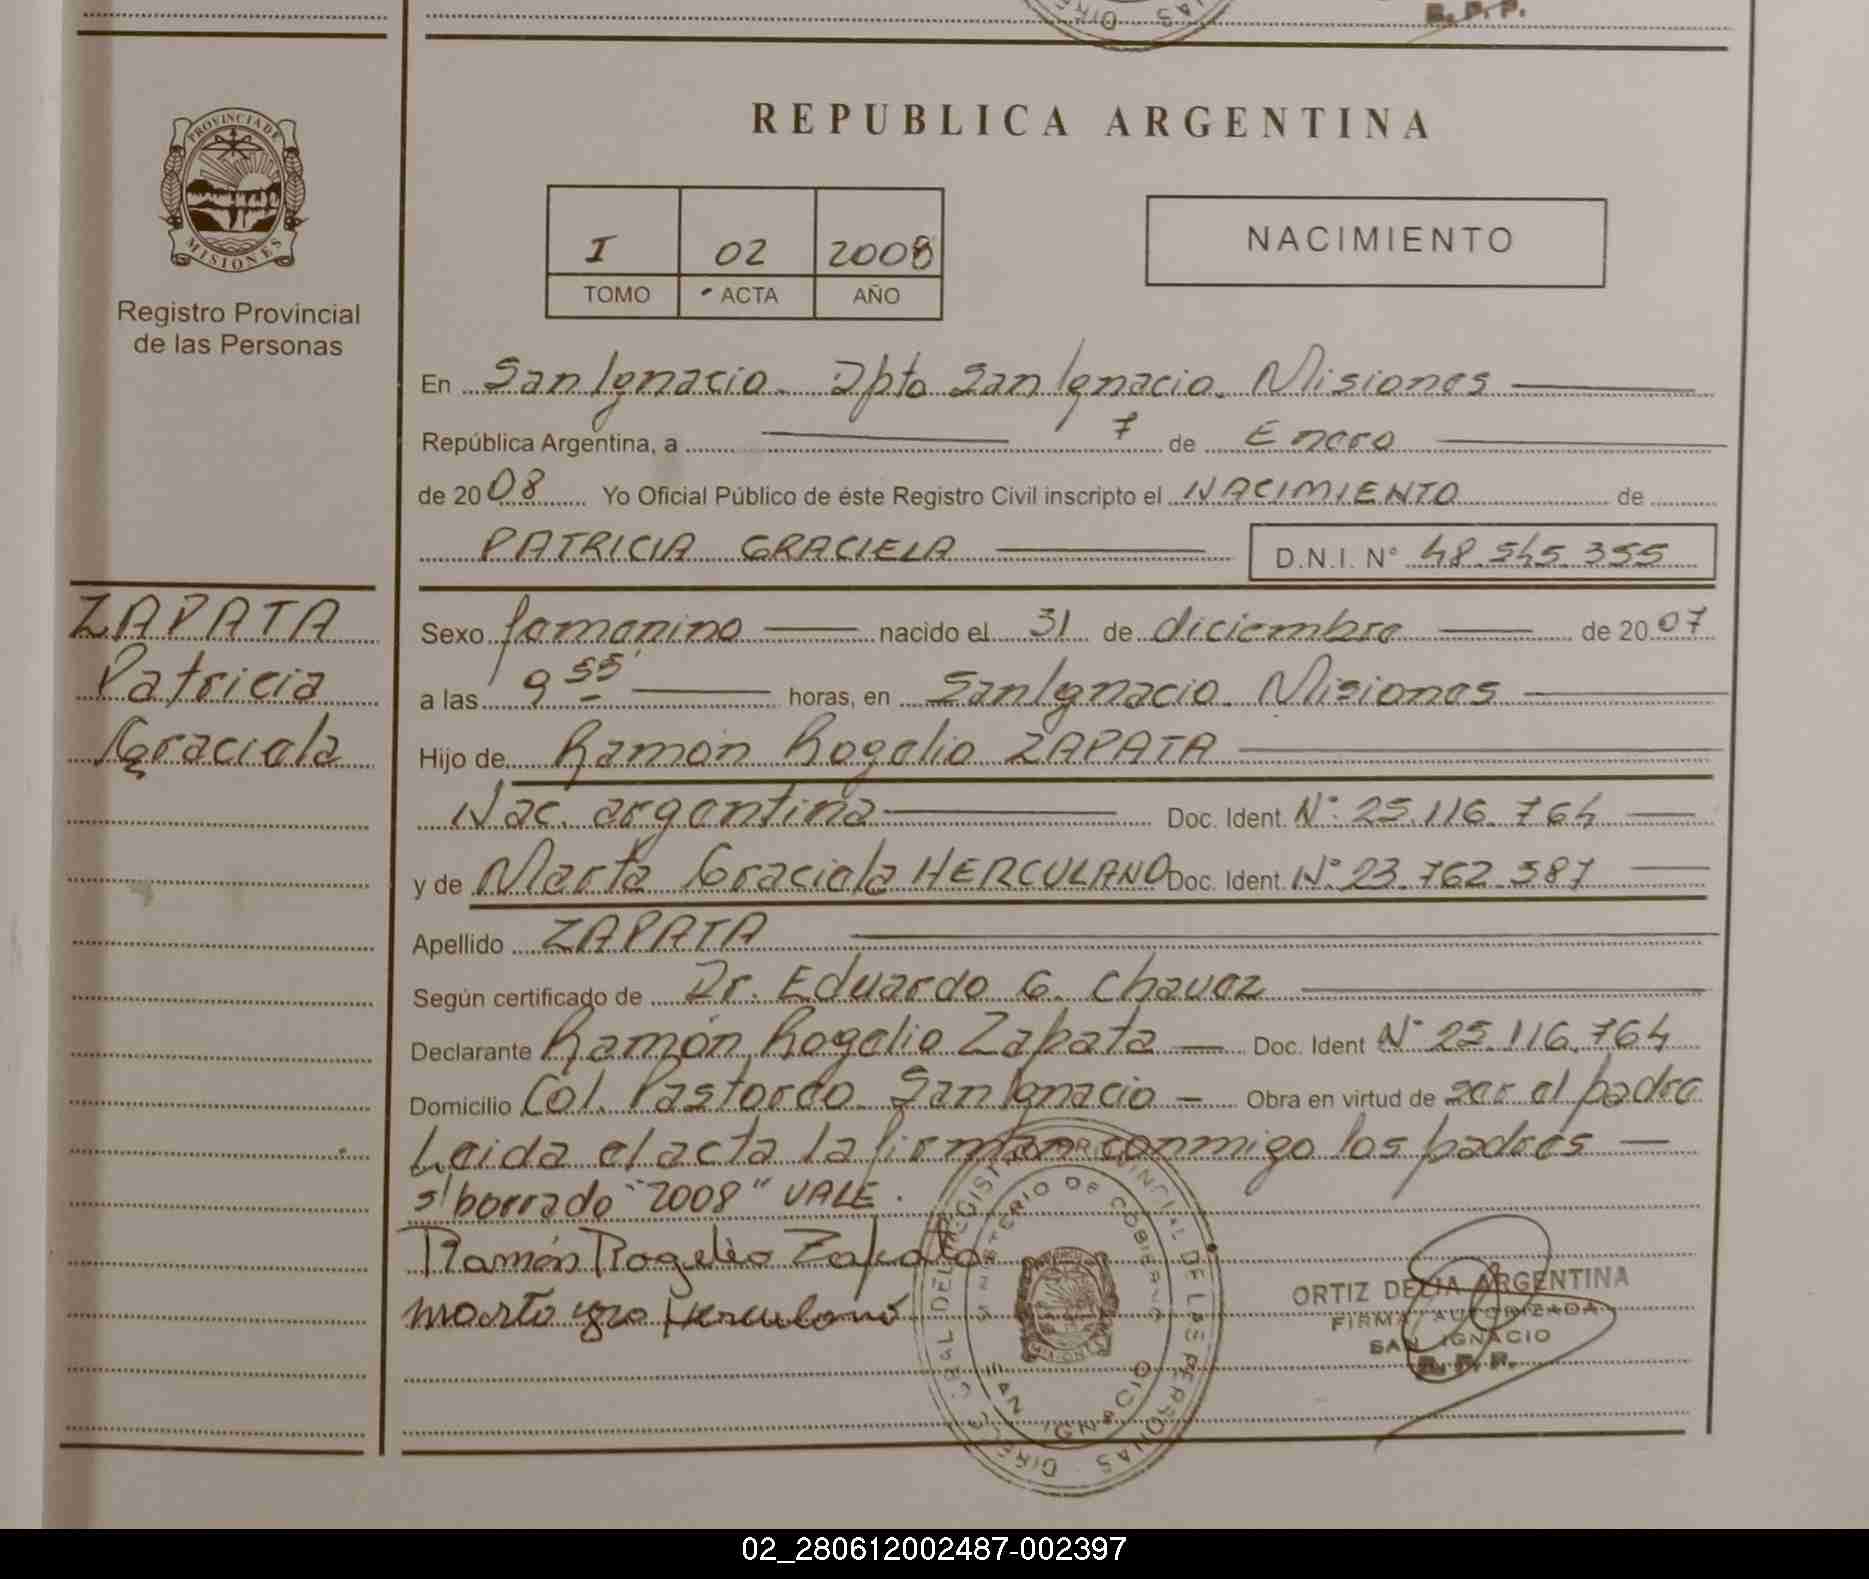 R. P. P.
REPUBLICA ARGENTINA
PROVINCIA DE
MISIONES
Registro Provincial
de las Personas
I 02 2008
TOMO ACTA AÑO
NACIMIENTO
En San Ignacio. Dpto San Ignacio. Misiones
República Argentina, a 7 de Enero
de 2008 Yo Oficial Público de éste Registro Civil inscripto el NACIMIENTO de
PATRICIA GRACIELA D.N.I. N° 48.545.355
ZAPATA
Patricia
Graciela
Sexo femenino nacido el 31 de diciembre de 2007
a las 9 55' horas, en San Ignacio. Misiones
Hijo de Ramón Rogelio ZAPATA
Nac. argentina Doc. Ident. N°: 25.116.764
y de Marta Graciela HERCULANO Doc. Ident. N° 23.762.587
Apellido ZAPATA
Según certificado de Dr. Eduardo G. Chavez
Declarante Ramón Rogelio Zapata Doc. Ident N° 25.116.764
Domicilio Col. Pastoreo. San Ignacio Obra en virtud de ser el padre
Leida el acta la firman conmigo los padres
s/borrado "2008" VALE.
Ramón Rogelio Zapata
Marta Gra Herculano
MINISTERIO DE GOBIERNO
SAN IGNACIO
ORTIZ DELIA ARGENTINA
FIRMA AUTORIZADA
SAN IGNACIO
R. P. P.
02_280612002487-002397